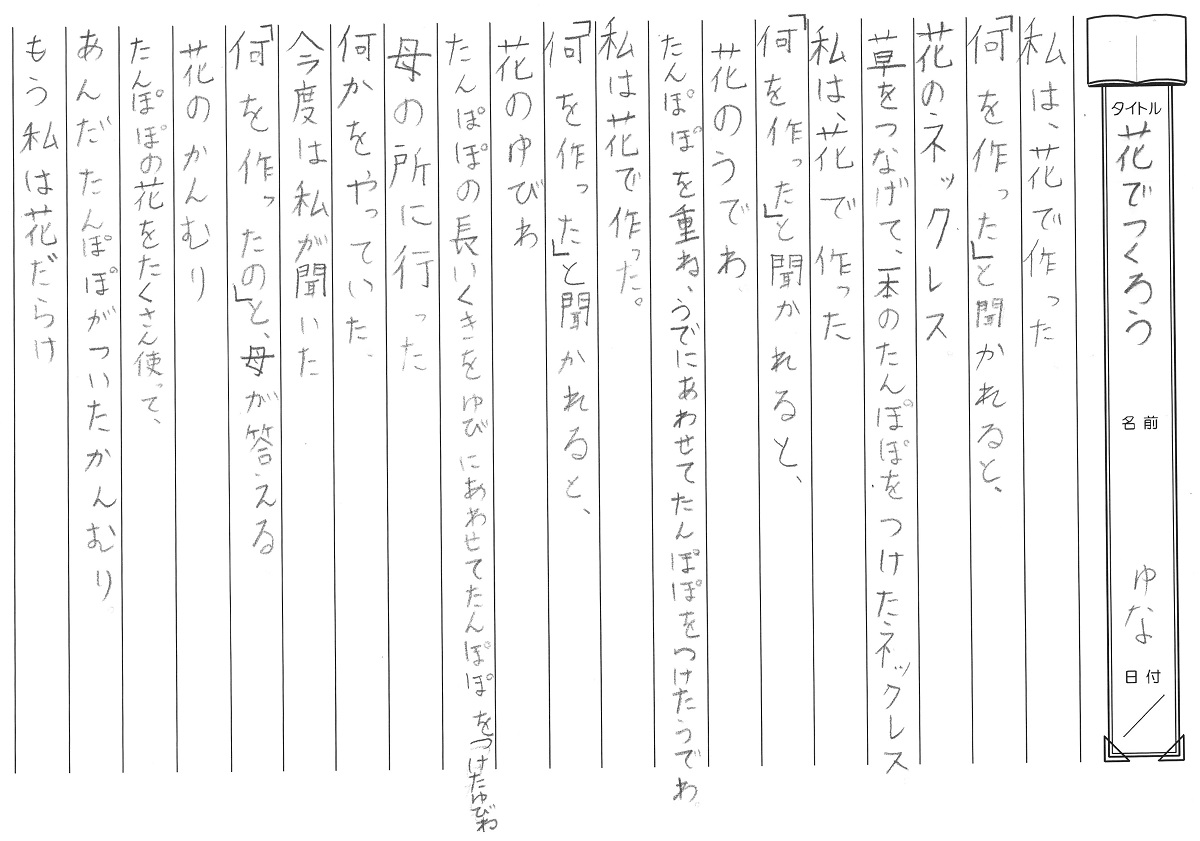 タイトル
花でつくろう
名前
ゆな
日付
私は、花で作った
「何を作った」と聞かれると、
花のネックレス
草をつなげて、一本のたんぽぽをつけたネックレス
私は、花で作った
「何を作った」と聞かれると、
花のうでわ
たんぽぽを重ね、うでにあわせてたんぽぽをつけたうでわ
私は花で作った。
「何を作った」と聞かれると、
花のゆびわ
たんぽぽの長いくきをゆびにあわせてたんぽぽをつけたゆびわ
母の所に行った
何かを、やっていた、
今度は私が聞いた
「何を作ったの」と、母が答える
花のかんむり
たんぽぽの花をたくさん使って、
あんだたんぽぽがついたかんむり
もう私は花だらけ